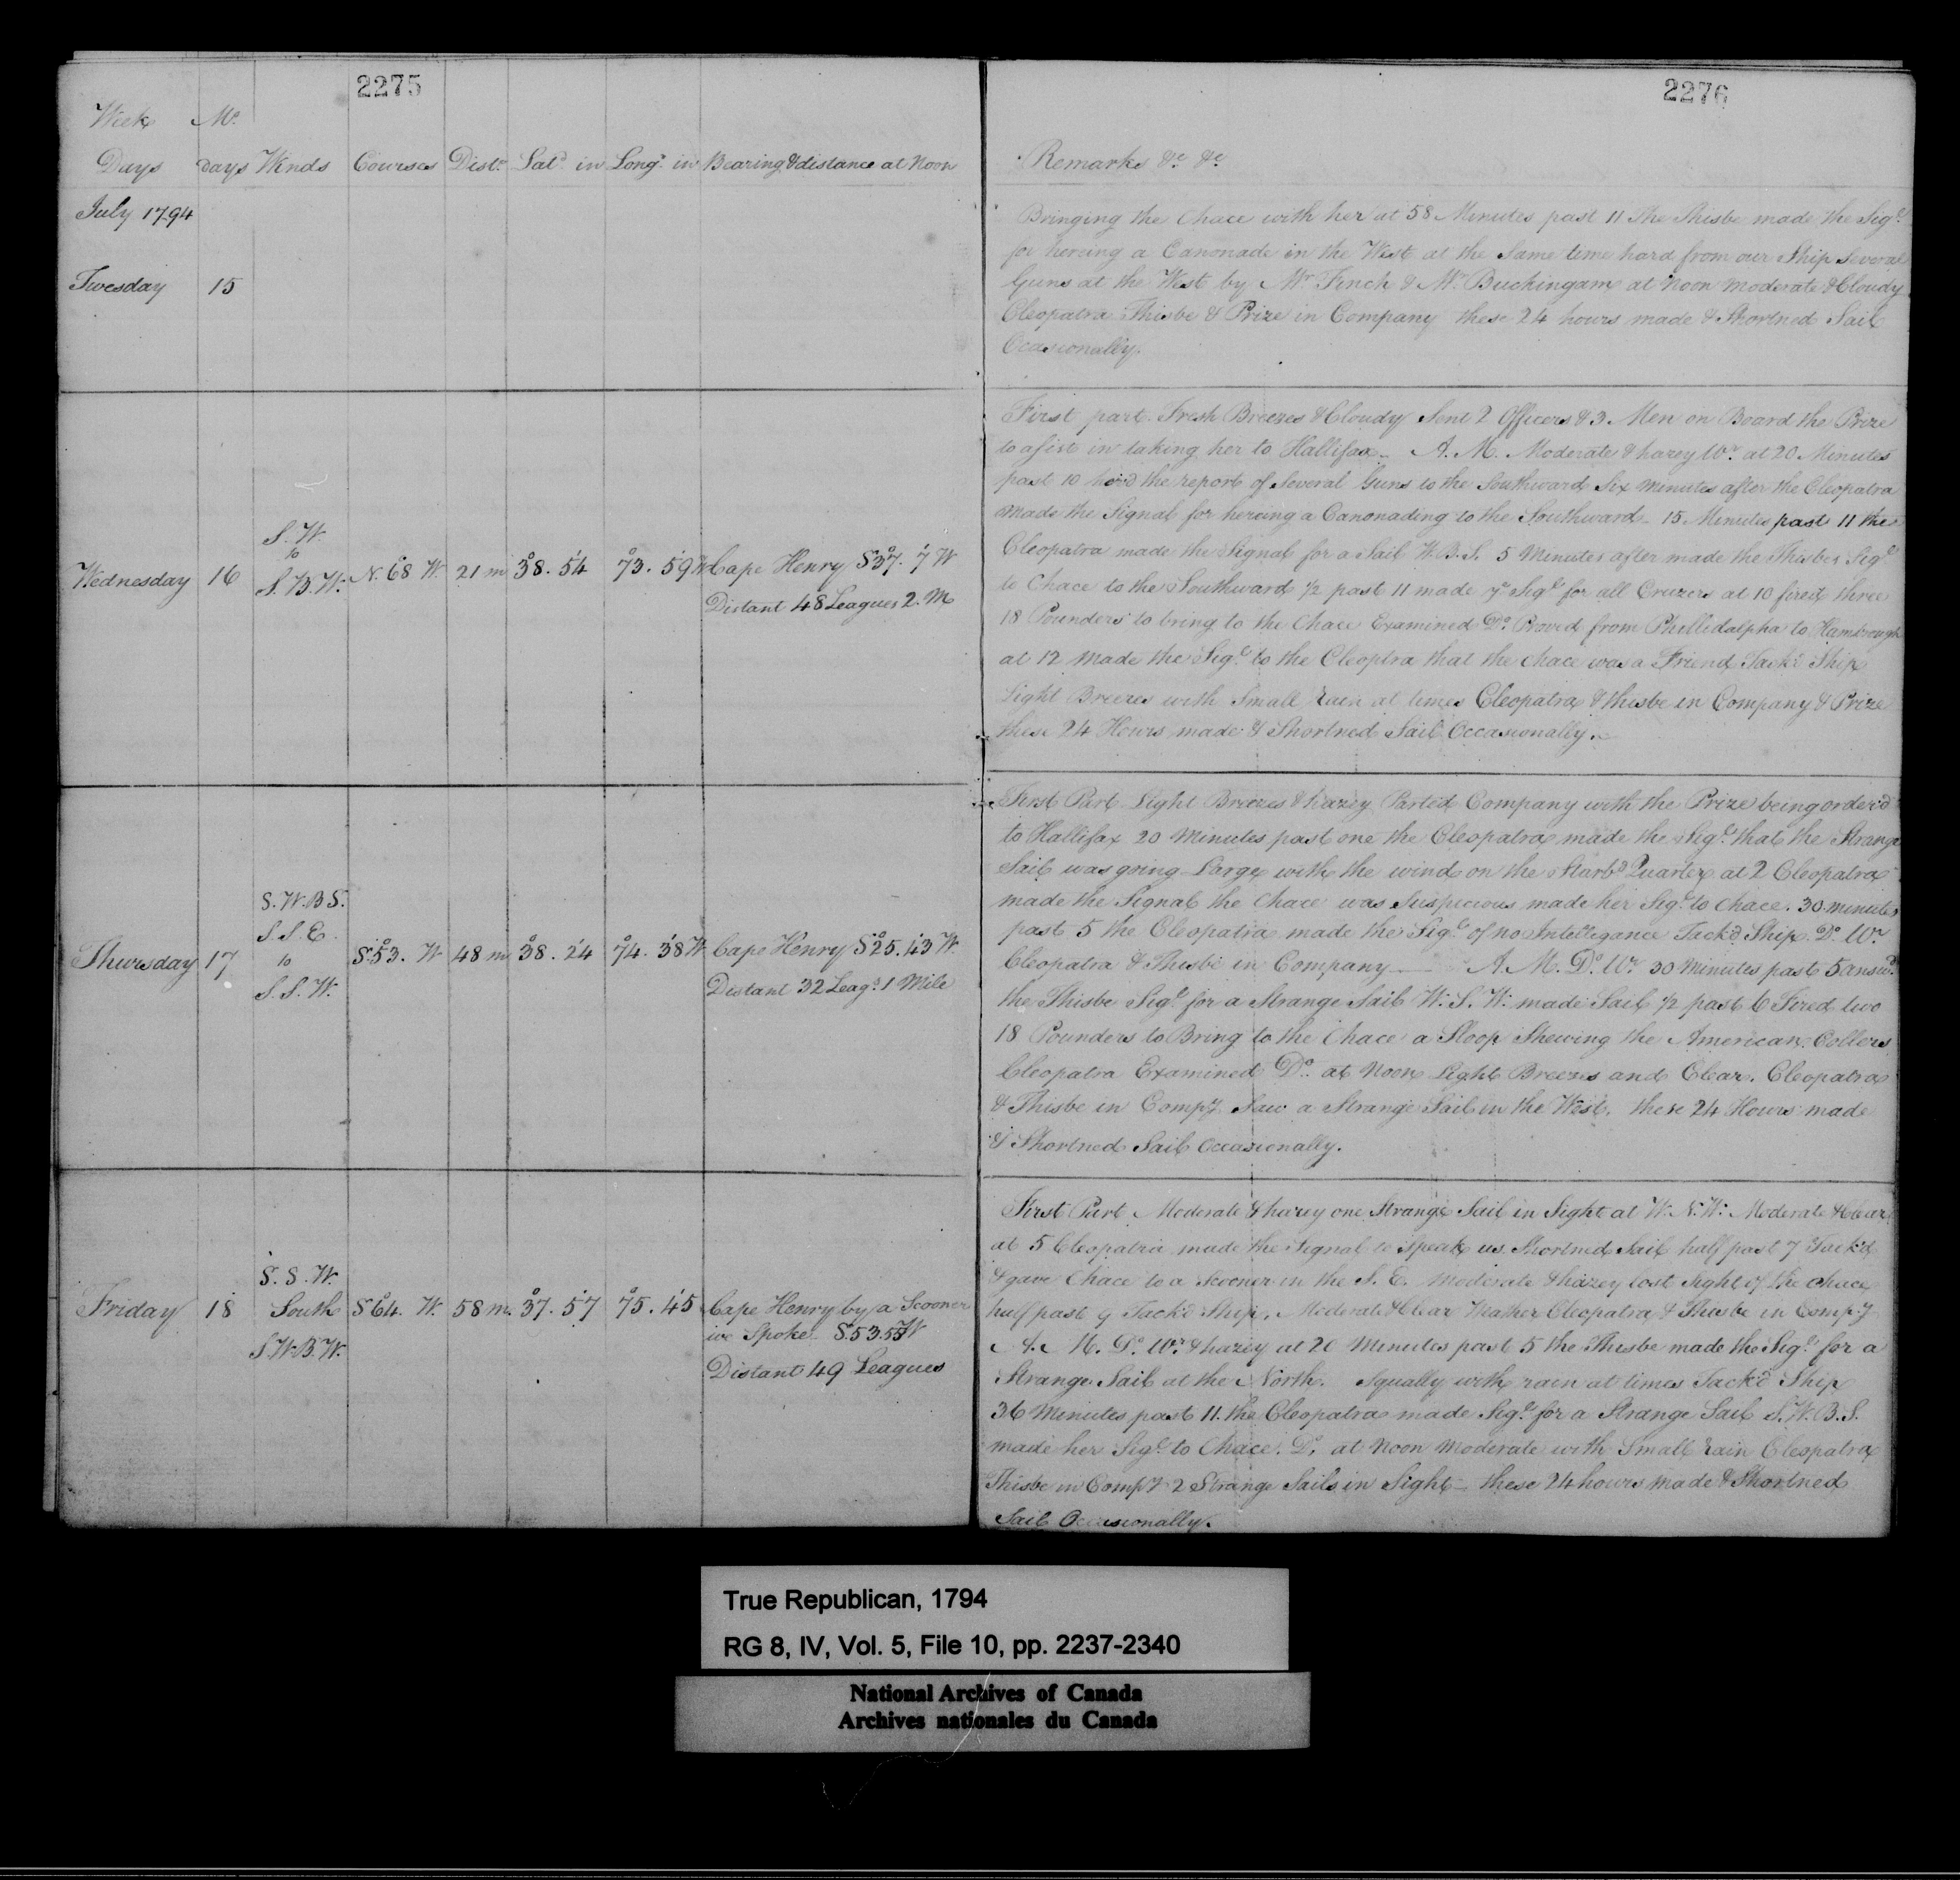 2275
Week Mo
Days days Winds Courses Distce Latd in Longe in Bearing & distance at Noon
July 1794
Tuesday 15
Wednesday 16 S. W. to S. B. W. N. 68 W 21 m 38°. 54' 73°. 59' W Cape Henry S 37°. 7' W
Distant 48 Leagues 2. M
Thursday 17 S. W. B S. S. S. E. to S. S. W. S. 53. W 48 m 38°. 24' 74°. 38' W Cape Henry S 25°. 43' W.
Distant 32 Leags. 1 Mile
Friday 18 S. S. W. South S. W. B. W. S 64. W 58 m. 37°. 57' 75°. 45' Cape Henry by a Scooner
we Spoke S. 53. 55 W
Distant 49 Leagues
2276
Remarks &c &c
Bringing the Chace with her at 58 Minutes past 11 The Thisbe made the Sigl
for hereing a Canonade in the West at the Same time hard from our Ship Several
Guns at the West by Mr Finch & Mr Buckingam at Noon Moderate & Cloudy
Cleopatra Thisbe & Prize in Company these 24 hours made & Shortned Sail
Ocasionally.
First part Fresh Breezes & Cloudy Sent 2 Officers & 3 Men on Board the Prize
to asist in taking her to Hallifax - A. M. Moderate & hazey Wr. at 20 Minutes
past 10 the report of Several Guns to the Southward Six Minutes after the Cleopatra
made the Signal for hereing a Canonading to the Southward - 15 Minutes past 11 the
Cleopatra made the Signal for a Sail W. B. S. 5 Minutes after made the Thisbes Sigl
to Chace to the Southward 1/2 past 11 made ye Sigl for all Cruzers at 10 fired three
18 Pounders to bring to the Chace Examined Do Proved from Phillidalpha to Hambrough
at 12 Made the Sigl to the Cleoptra that the Chace was a Friend Tack'd Ship
Light Breezes with Small rain at times Cleopatra & thisbe in Company & Prize
these 24 Hours made & Shortned Sail Occasionally.
First Part Light Breezes & hazey Parted Company with the Prize being order'd
to Hallifax 20 Minutes past one the Cleopatra made the Sigl that the Strange
Sail was going Large with the wind on the Starbd Quarter at 2 Cleopatra
made the Signal the Chace was Suspicious made her Sigl to Chace. 30 minutes
past 5 the Cleopatra made the Sigl of no Intelligance Tack'd Ship Do Wr
Cleopatra & Thisbe in Company - A. M. Do Wr 30 Minutes past 5 answd
the Thisbe Sigl for a Strange Sail W. S. W. made Sail 1/2 past 6 Fired two
18 Pounders to Bring to the Chace a Sloop Shewing the American Collers
Cleopatra Examined Do. at Noon Light Breezes and Clear. Cleopatra
& Thisbe in Compy Saw a Strange Sail in the West. these 24 Hours made
& Shortned Sail Occasionally.
First Part Moderate & hazey one Strange Sail in Sight at W. N. W. Moderate & Clear
at 5 Cleopatra made the Signal to Speak us Shortned Sail half past 7 Tack'd
& gave Chace to a Scooner in the S. E. Moderate & hazey lost Sight of the chace
half past 9 Tack'd Ship. Moderate & Clear Weather Cleopatra & Thisbe in Compy
A. M. Do. Wr & hazey at 20 Minutes past 5 the Thisbe made the Sigl for a
Strange Sail at the North. Squally with rain at times Tack'd Ship
36 Minutes past 11. the Cleopatra made Sigl for a Strange Sail S. W. B. S.
made her Sigl to Chace. Do. at Noon Moderate with Small rain Cleopatra
Thisbe in Compy 2 Strange Sails in Sight - these 24 hours made & Shortned
Sail Occasionally.
True Republican, 1794
RG 8, IV, Vol. 5, File 10, pp. 2237-2340
National Archives of Canada
Archives nationales du Canada